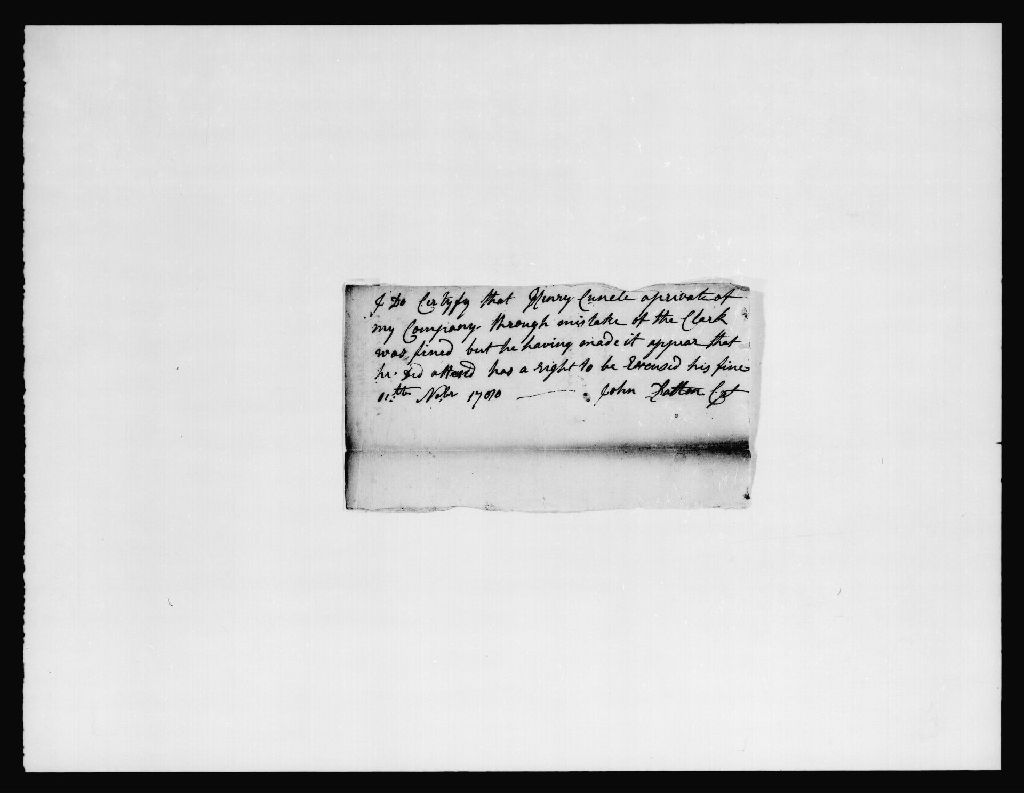 I Do Certyfy that Henry Cuncle aprivate of
my Company through mistake of the Clark
was fined but he having made it appear that
he did attend has a right to be Excused his fine
11th Nobr 1780 John Patton Cpt